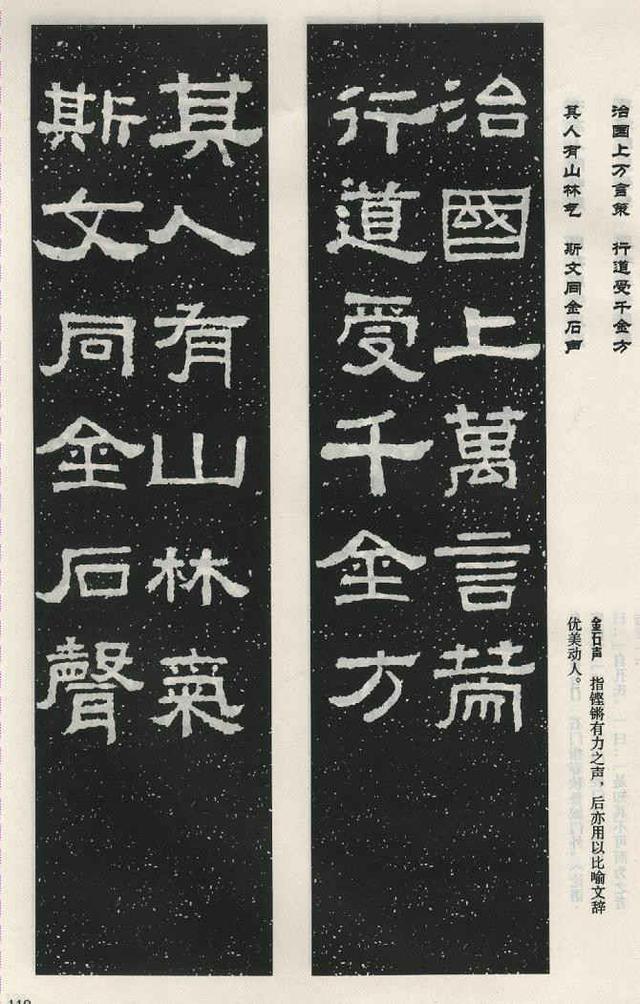 治国上万言策　行道受千金方
其人有山林气　斯文同金石声
金石声　指铿锵有力之声，后亦用以比喻文辞
优美动人。
治國上萬言策
行道受千金方
其人有山林氣
斯文同金石聲